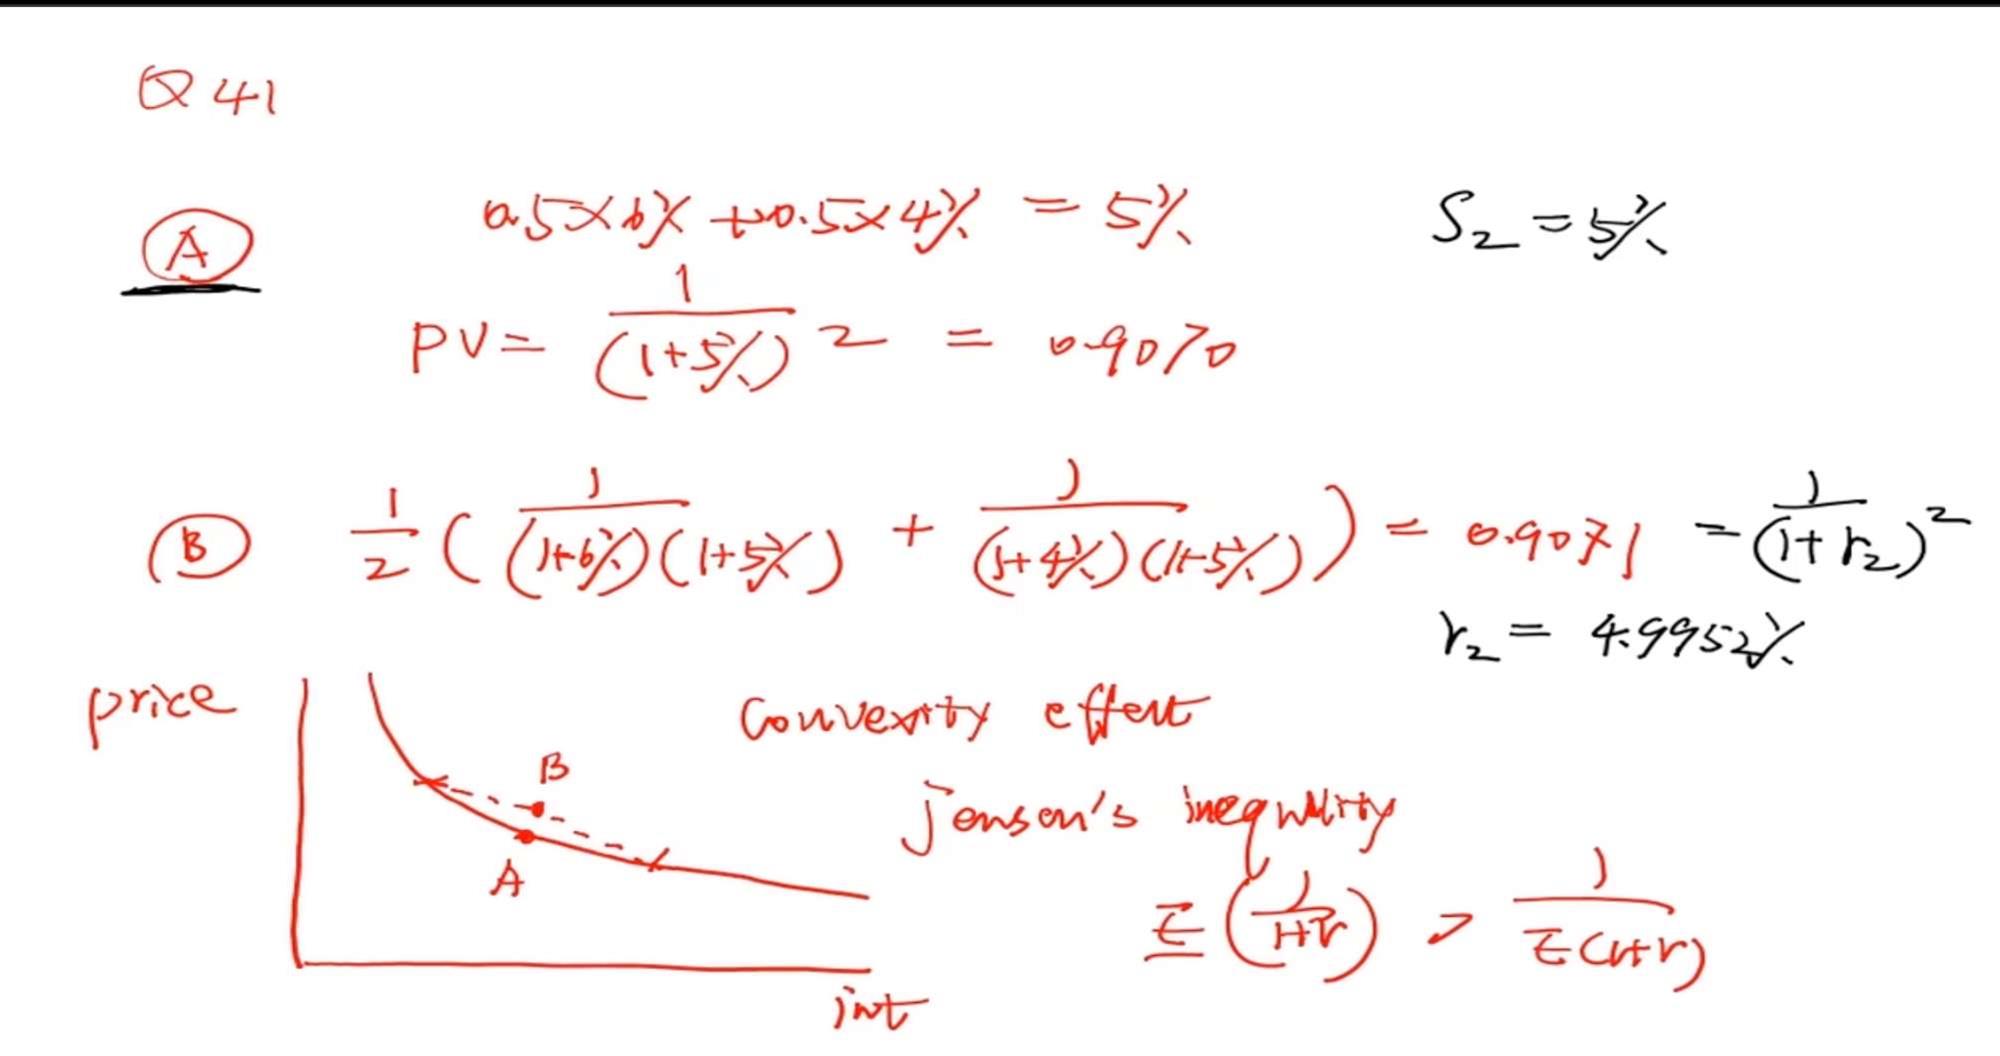 Q 41
A
0.5×6% + 0.5×4% = 5%
S₂ = 5%
PV = 1/(1+5%)² = 0.9070
B
1/2 ( 1/((1+6%)(1+5%)) + 1/((1+4%)(1+5%)) ) = 0.9071 = 1/(1+r₂)²
r₂ = 4.9952%
price
Convexity effect
B
A
Jenson's inequality
E(1/(1+r)) > 1/E(1+r)
int